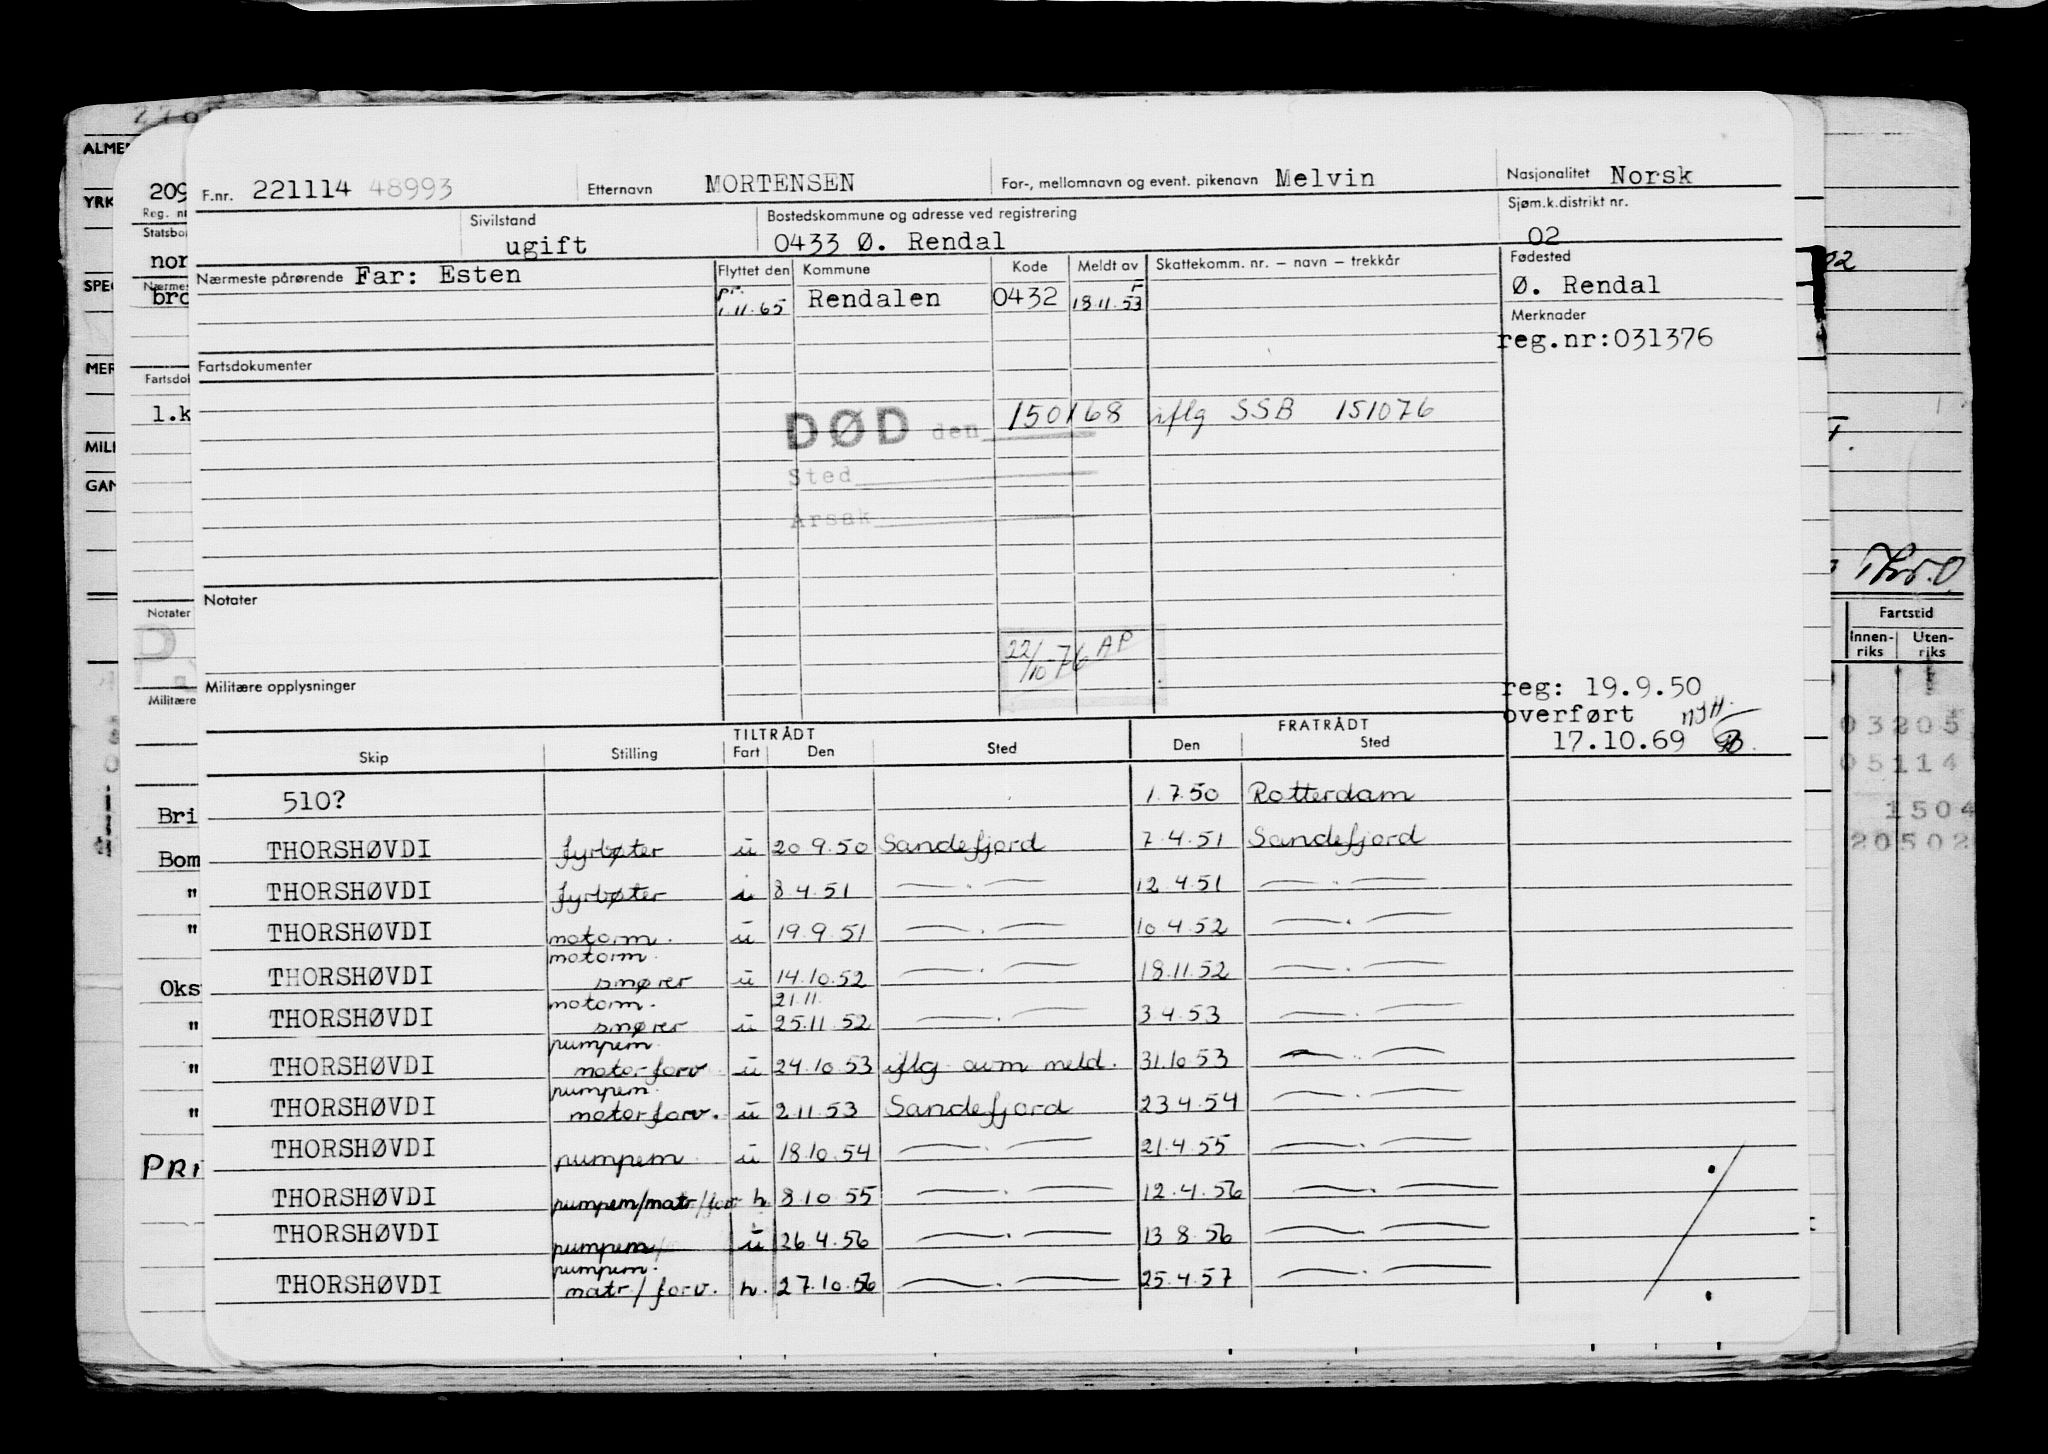 F.nr. 221114 48993 Etternavn MORTENSEN For-, mellomnavn og event. pikenavn Melvin Nasjonalitet Norsk
Sivilstand ugift Bostedskommune og adresse ved registrering 0433 Ø. Rendal Sjøm.k.distrikt nr. 02
Nærmeste pårørende Far: Esten Flyttet den Kommune Kode Meldt av Skattekomm. nr. – navn – trekkår Fødested
Ø. Rendal
pr. 1.11.65 Rendalen 0432 18.11.53 Merknader
reg.nr:031376
Fartsdokumenter
DØD den 150168 iflg SSB 151076
Sted
Årsak
Notater
22/10-76 AP
Militære opplysninger
reg: 19.9.50
overført
17.10.69
TILTRÅDT FRATRÅDT
Skip Stilling Fart Den Sted Den Sted
510? 1.7.50 Rotterdam
THORSHØVDI fyrbøter u 20 9.50 Sandefjord 7.4.51 Sandefjord
THORSHØVDI fyrbøter i 8.4.51 — . — 12.4.51 — . —
THORSHØVDI motorm. u 19.9.51 — . — 10.4.52 — . —
THORSHØVDI motorm. smører u 14.10.52 — . — 18.11.52 — . —
THORSHØVDI motorm. smører u 21.11. 25.11.52 — . — 3.4.53 — . —
THORSHØVDI pumpem. motorforv u 24.10.53 iflg avm meld. 31.10.53 — . —
THORSHØVDI pumpem. motorforv. u 2.11.53 Sandefjord 23.4.54 — . —
THORSHØVDI pumpem. u 18.10.54 — . — 21.4.55 — . —
THORSHØVDI pumpem/matr/forv h. 8.10.55 — . — 12.4.56 — . —
THORSHØVDI pumpem/ u 26.4.56 — . — 13 8.56 — . —
THORSHØVDI pumpem. matr/forv. h. 27.10.56 — . — 25.4.57 — . —
ALME
YRK
SPE
MER
MILI
GAN
209
Reg. nr
Statsbo
nor
Nærmes
bro
Fartsdo
1.k
Notater
Militære
Bri
Bom
"
"
Oks
"
"
"
PRI
Thr.O.
Fartstid
Innen-riks Uten-riks
03205
05114
1504
20502